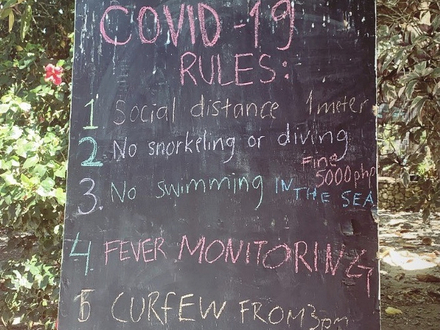 COVID-19
RULES:
1 Social distance 1meter
2. No snorkeling or diving
Fine
5000php
3. No swimming IN THE SEA
4 FEVER MONITORING
5 CURFEW FROM 3pm